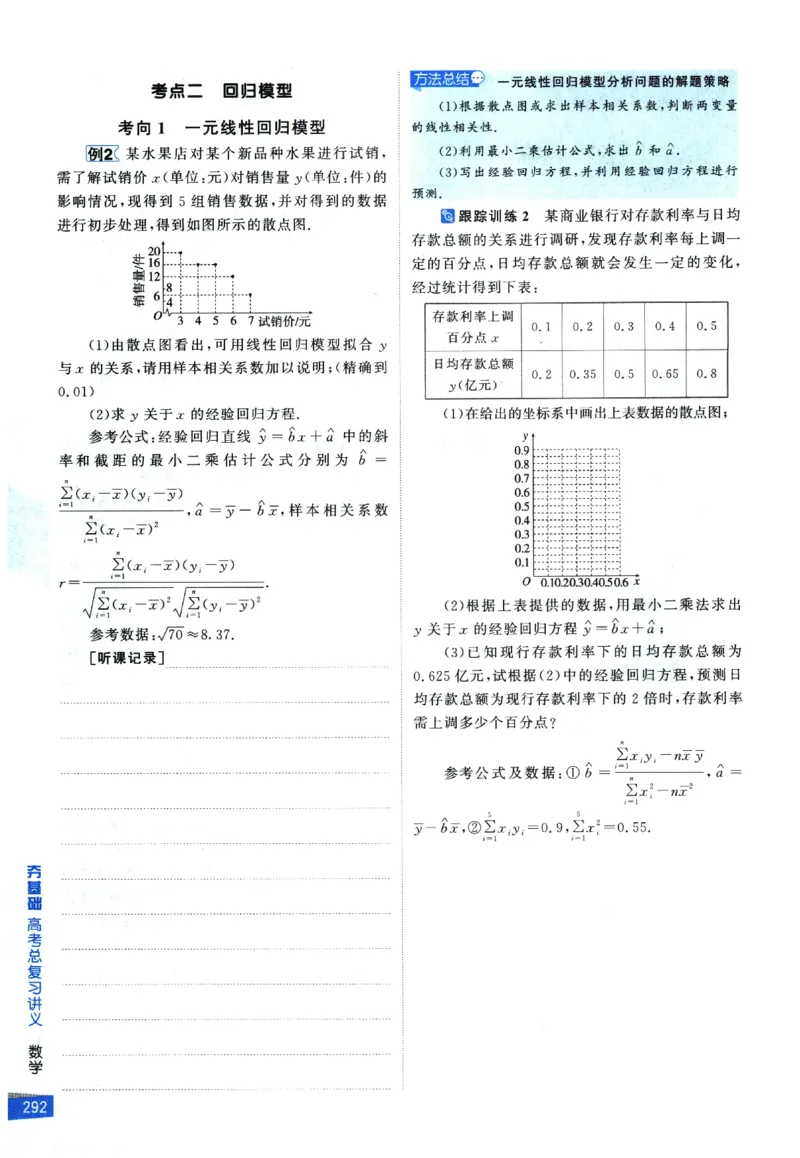 考点二 回归模型
考向 1 一元线性回归模型
例2 某水果店对某个新品种水果进行试销,
需了解试销价 x(单位:元)对销售量 y(单位:件)的
影响情况,现得到 5 组销售数据,并对得到的数据
进行初步处理,得到如图所示的散点图.
销售量/件
20
16
12
8
6
4
O 3 4 5 6 7 试销价/元
(1)由散点图看出,可用线性回归模型拟合 y
与 x 的关系,请用样本相关系数加以说明;(精确到
0.01)
(2)求 y 关于 x 的经验回归方程.
参考公式:经验回归直线 ŷ=b̂x+â 中的斜
率和截距的最小二乘估计公式分别为 b̂ =
∑_{i=1}^{n}(x_i-x̄)(y_i-ȳ) / ∑_{i=1}^{n}(x_i-x̄)² ,â=ȳ-b̂x̄,样本相关系数
r= ∑_{i=1}^{n}(x_i-x̄)(y_i-ȳ) / (√∑_{i=1}^{n}(x_i-x̄)² √∑_{i=1}^{n}(y_i-ȳ)²) .
参考数据:√70≈8.37.
[听课记录]
方法总结 一元线性回归模型分析问题的解题策略
(1)根据散点图或求出样本相关系数,判断两变量
的线性相关性.
(2)利用最小二乘估计公式,求出 b̂ 和 â.
(3)写出经验回归方程,并利用经验回归方程进行
预测.
跟踪训练 2 某商业银行对存款利率与日均
存款总额的关系进行调研,发现存款利率每上调一
定的百分点,日均存款总额就会发生一定的变化,
经过统计得到下表:
存款利率上调
百分点 x 0.1 0.2 0.3 0.4 0.5
日均存款总额
y(亿元) 0.2 0.35 0.5 0.65 0.8
(1)在给出的坐标系中画出上表数据的散点图;
y
0.9
0.8
0.7
0.6
0.5
0.4
0.3
0.2
0.1
O 0.10.20.30.40.50.6 x
(2)根据上表提供的数据,用最小二乘法求出
y 关于 x 的经验回归方程 ŷ=b̂x+â;
(3)已知现行存款利率下的日均存款总额为
0.625 亿元,试根据(2)中的经验回归方程,预测日
均存款总额为现行存款利率下的 2 倍时,存款利率
需上调多少个百分点?
参考公式及数据:① b̂ = (∑_{i=1}^{n}x_iy_i-nx̄ȳ) / (∑_{i=1}^{n}x_i²-nx̄²) ,â =
ȳ-b̂x̄,②∑_{i=1}^{5}x_iy_i=0.9,∑_{i=1}^{5}x_i²=0.55.
夯基础 高考总复习讲义 数学
292